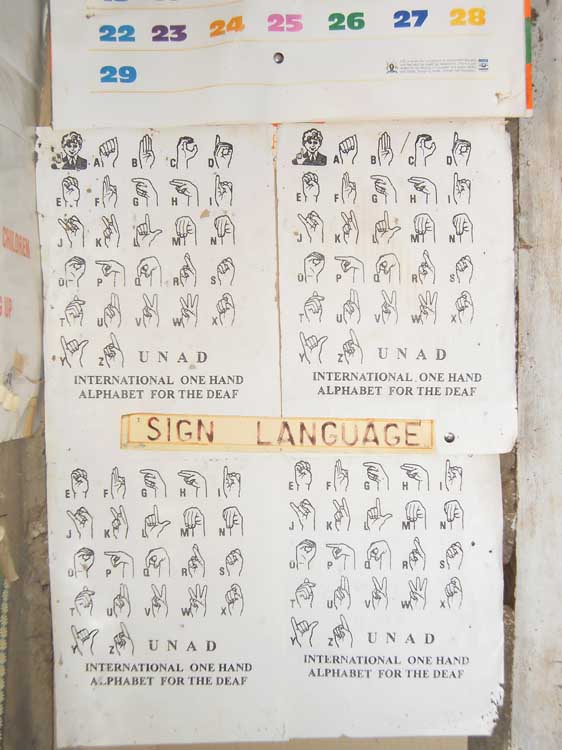 22 23 24 25 26 27 28
29
CHILDREN
G UP
A B C D
E F G H I
J K L M N
O P Q R S
T U V W X
Y Z UNAD
INTERNATIONAL ONE HAND
ALPHABET FOR THE DEAF
A B C D
E F G H I
J K L M N
O P Q R S
T U V W X
Y Z UNAD
INTERNATIONAL ONE HAND
ALPHABET FOR THE DEAF
SIGN LANGUAGE
E F G H I
J K L M N
O P Q R S
T U V W X
Y Z UNAD
INTERNATIONAL ONE HAND
ALPHABET FOR THE DEAF
E F G H I
J K L M N
O P Q R S
T U V W X
Y Z UNAD
INTERNATIONAL ONE HAND
ALPHABET FOR THE DEAF